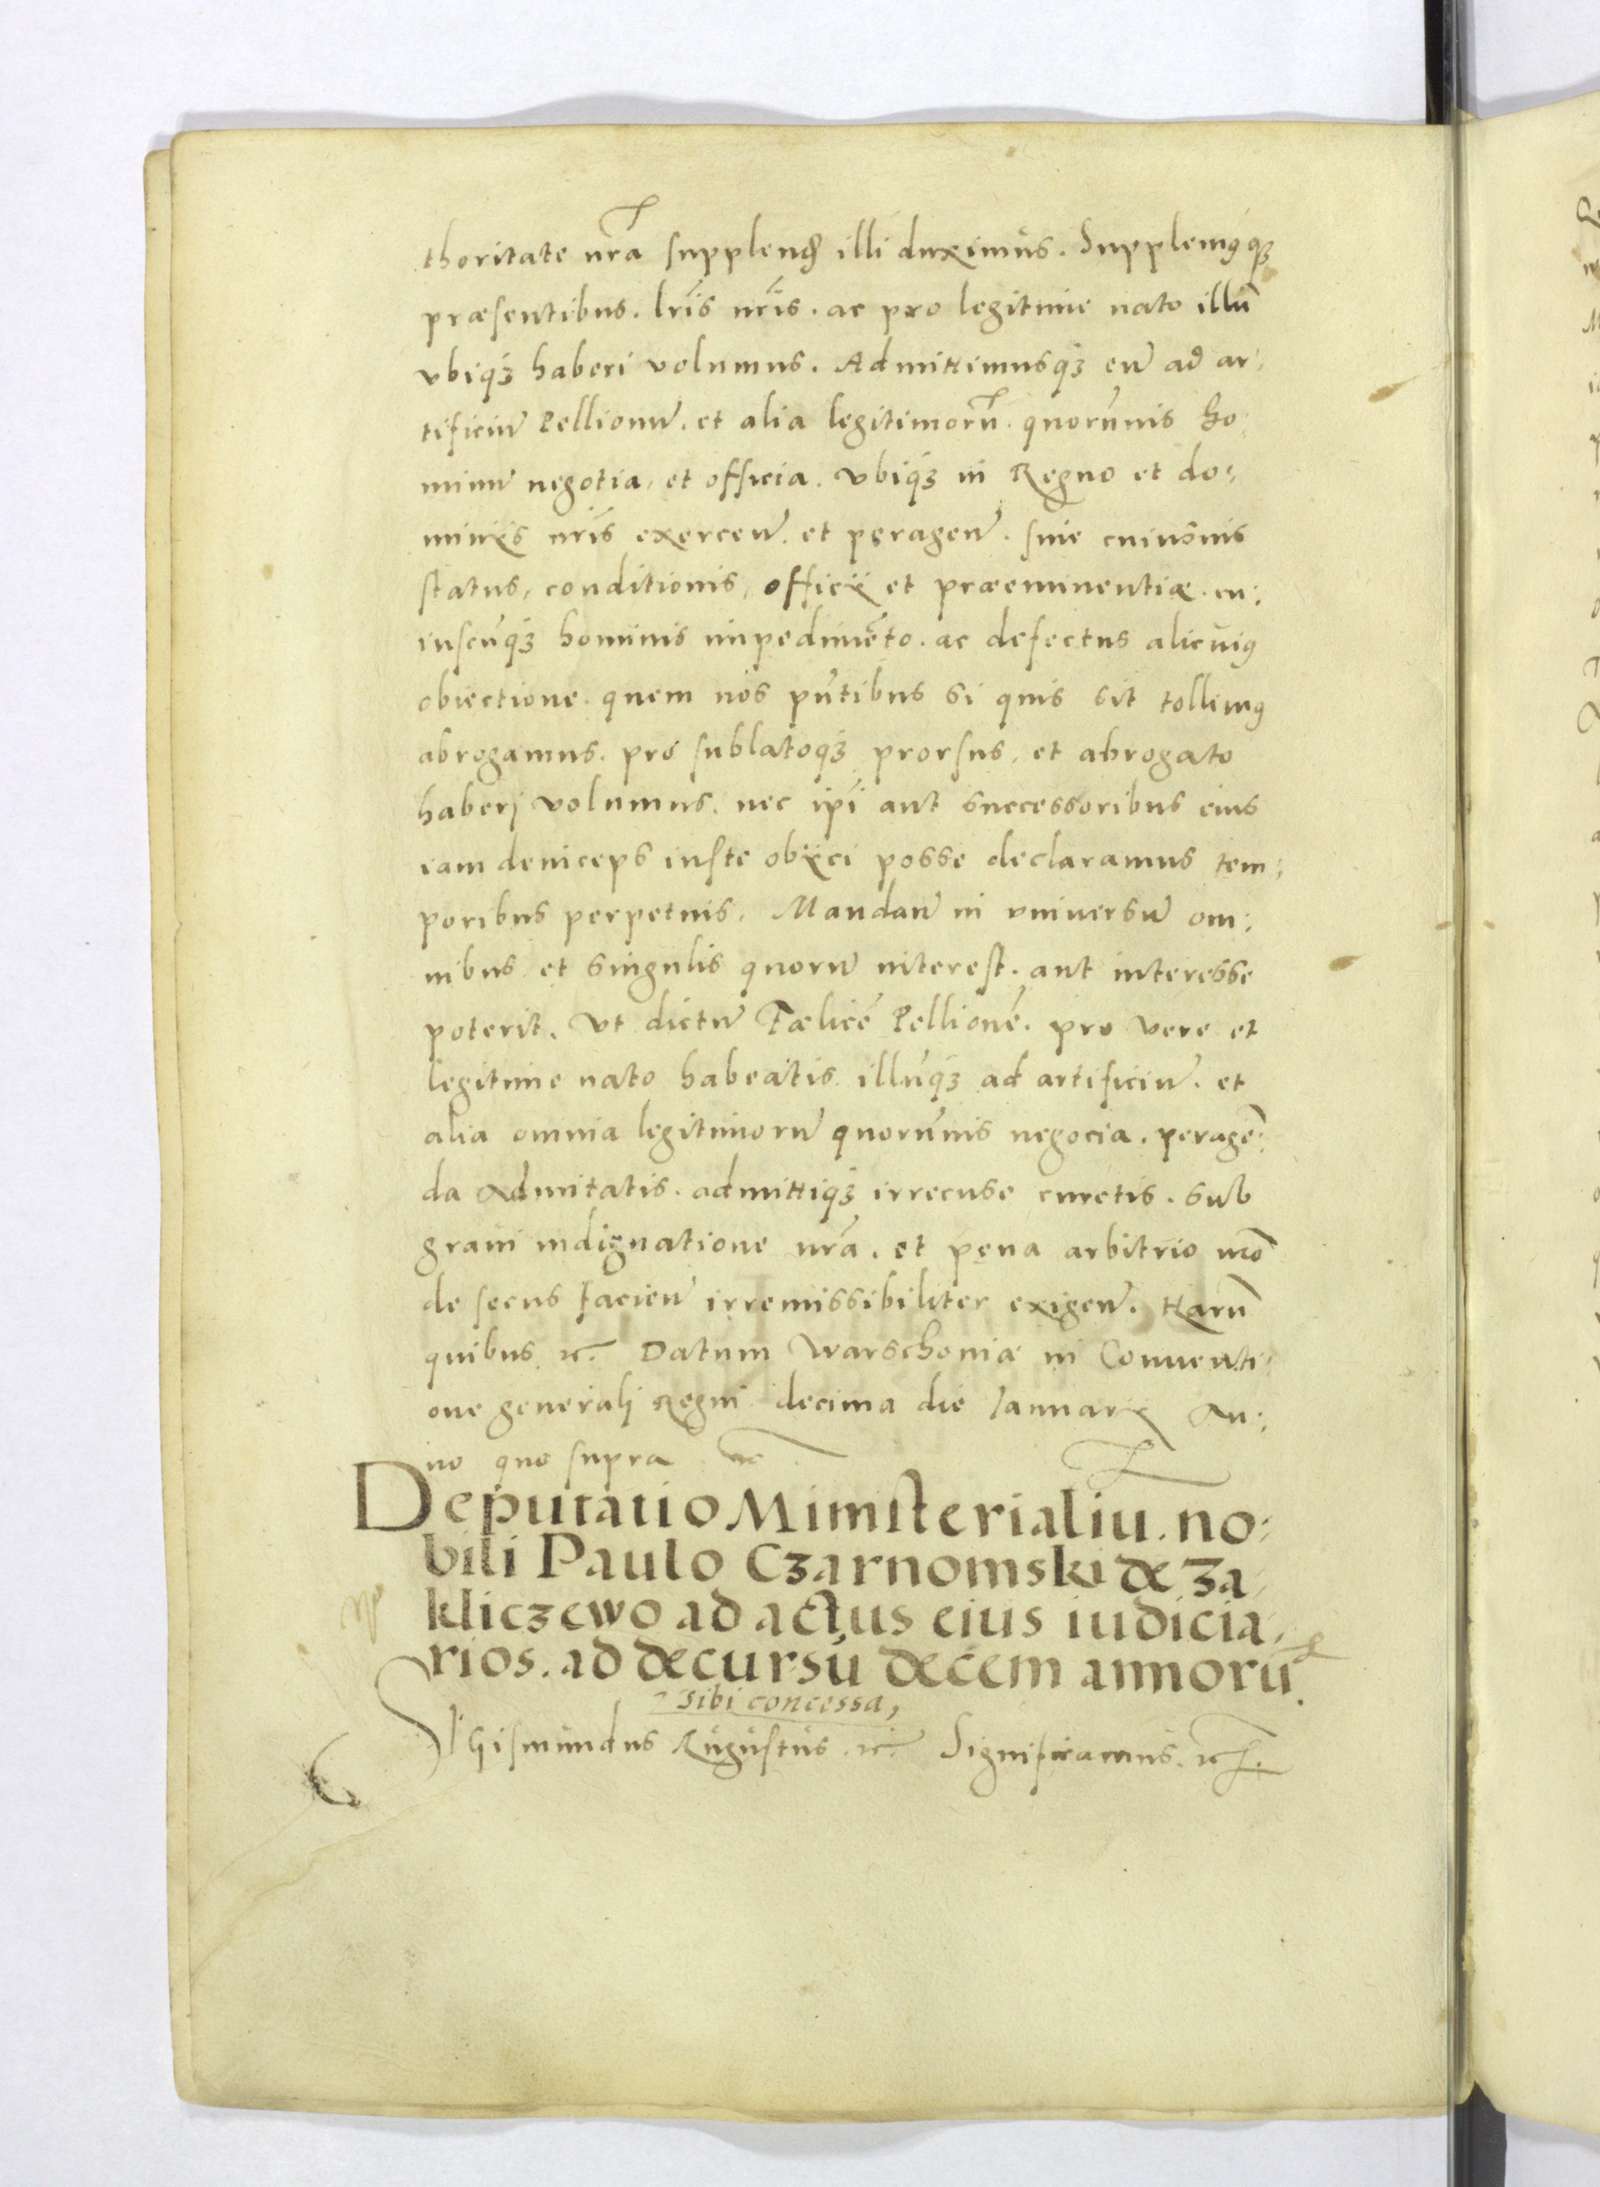 thoritate nrã supplend illi duximus. Supplemusq3
præsentibus. lris nris. ac pro legitime nato illũ
vbiq3 haberi volumus. Admittimusq3 eum ad ar:
tificium Pellionum. et alia legitimorũ. quorumuis ho:
minum negotia, et officia. vbiq3 in Regno et do:
minijs nris exercen. et peragen. sine cuiusuis
status, conditionis, officij et præeminentiæ. cu:
iuscũq3 hominis impedimẽto. ac defectus alicuius
obiectione. quem nos pñtibus si quis sit tollimus
abrogamus. pro sublatoq3 prorsus, et abrogato
haberj volumus. nec ipi aut successoribus eius
iam deinceps iuste obijci posse declaramus tem:
poribus perpetuis. Mandan in vniuersum om:
nibus et singulis quorum interest. aut interesse
poterit. vt dictum Fælicẽ Pellionẽ. pro vere et
legitime nato habeatis illũq3 ad artificium. et
alia omnia legitimorum quorumuis negocia. peragẽ:
da admitatis. admittiq3 irrecuse curetis. sub
graui indignatione nrã. et pęna arbitrio nrõ
de secus facien irremissibiliter exigen. Harũ
quibus etc. Datum Warschouiæ in Conuenti:
one generalj Regni decima die Ianuarij An:
no quo supra etc
Deputatio Ministerialiũ. no:
bili Paulo Czarnomski de Za:
kliczewo ad actus eius iudicia:
rios. ad decursũ decem annorũ.
sibi concessa,
Sigismundus Augustus etc. Significamus. etc.